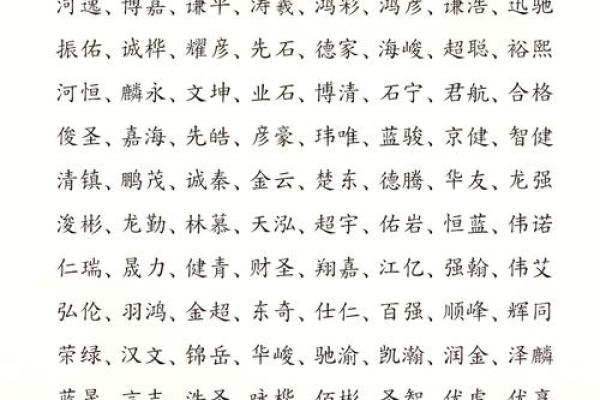 河逸、博嘉、谦平、涛羲、鸿彩、鸿彦、谦浩、迅驰
振佑、诚桦、耀彦、先石、德家、海峻、超聪、裕熙
河恒、麟永、文坤、业石、博清、石宁、君航、合格
俊圣、嘉海、先皓、彦豪、玮唯、蓝骏、京健、智健
清镇、鹏茂、诚秦、金云、楚东、德腾、华友、龙强
浚彬、龙勤、林慕、天泓、超宇、佑岩、恒蓝、伟诺
仁瑞、晟力、健青、财圣、翔嘉、江亿、强翰、伟艾
弘伦、羽鸿、金超、东奇、仕仁、百强、顺峰、辉同
荣绿、汉文、锦岳、华峻、驰渝、凯瀚、润金、泽麟